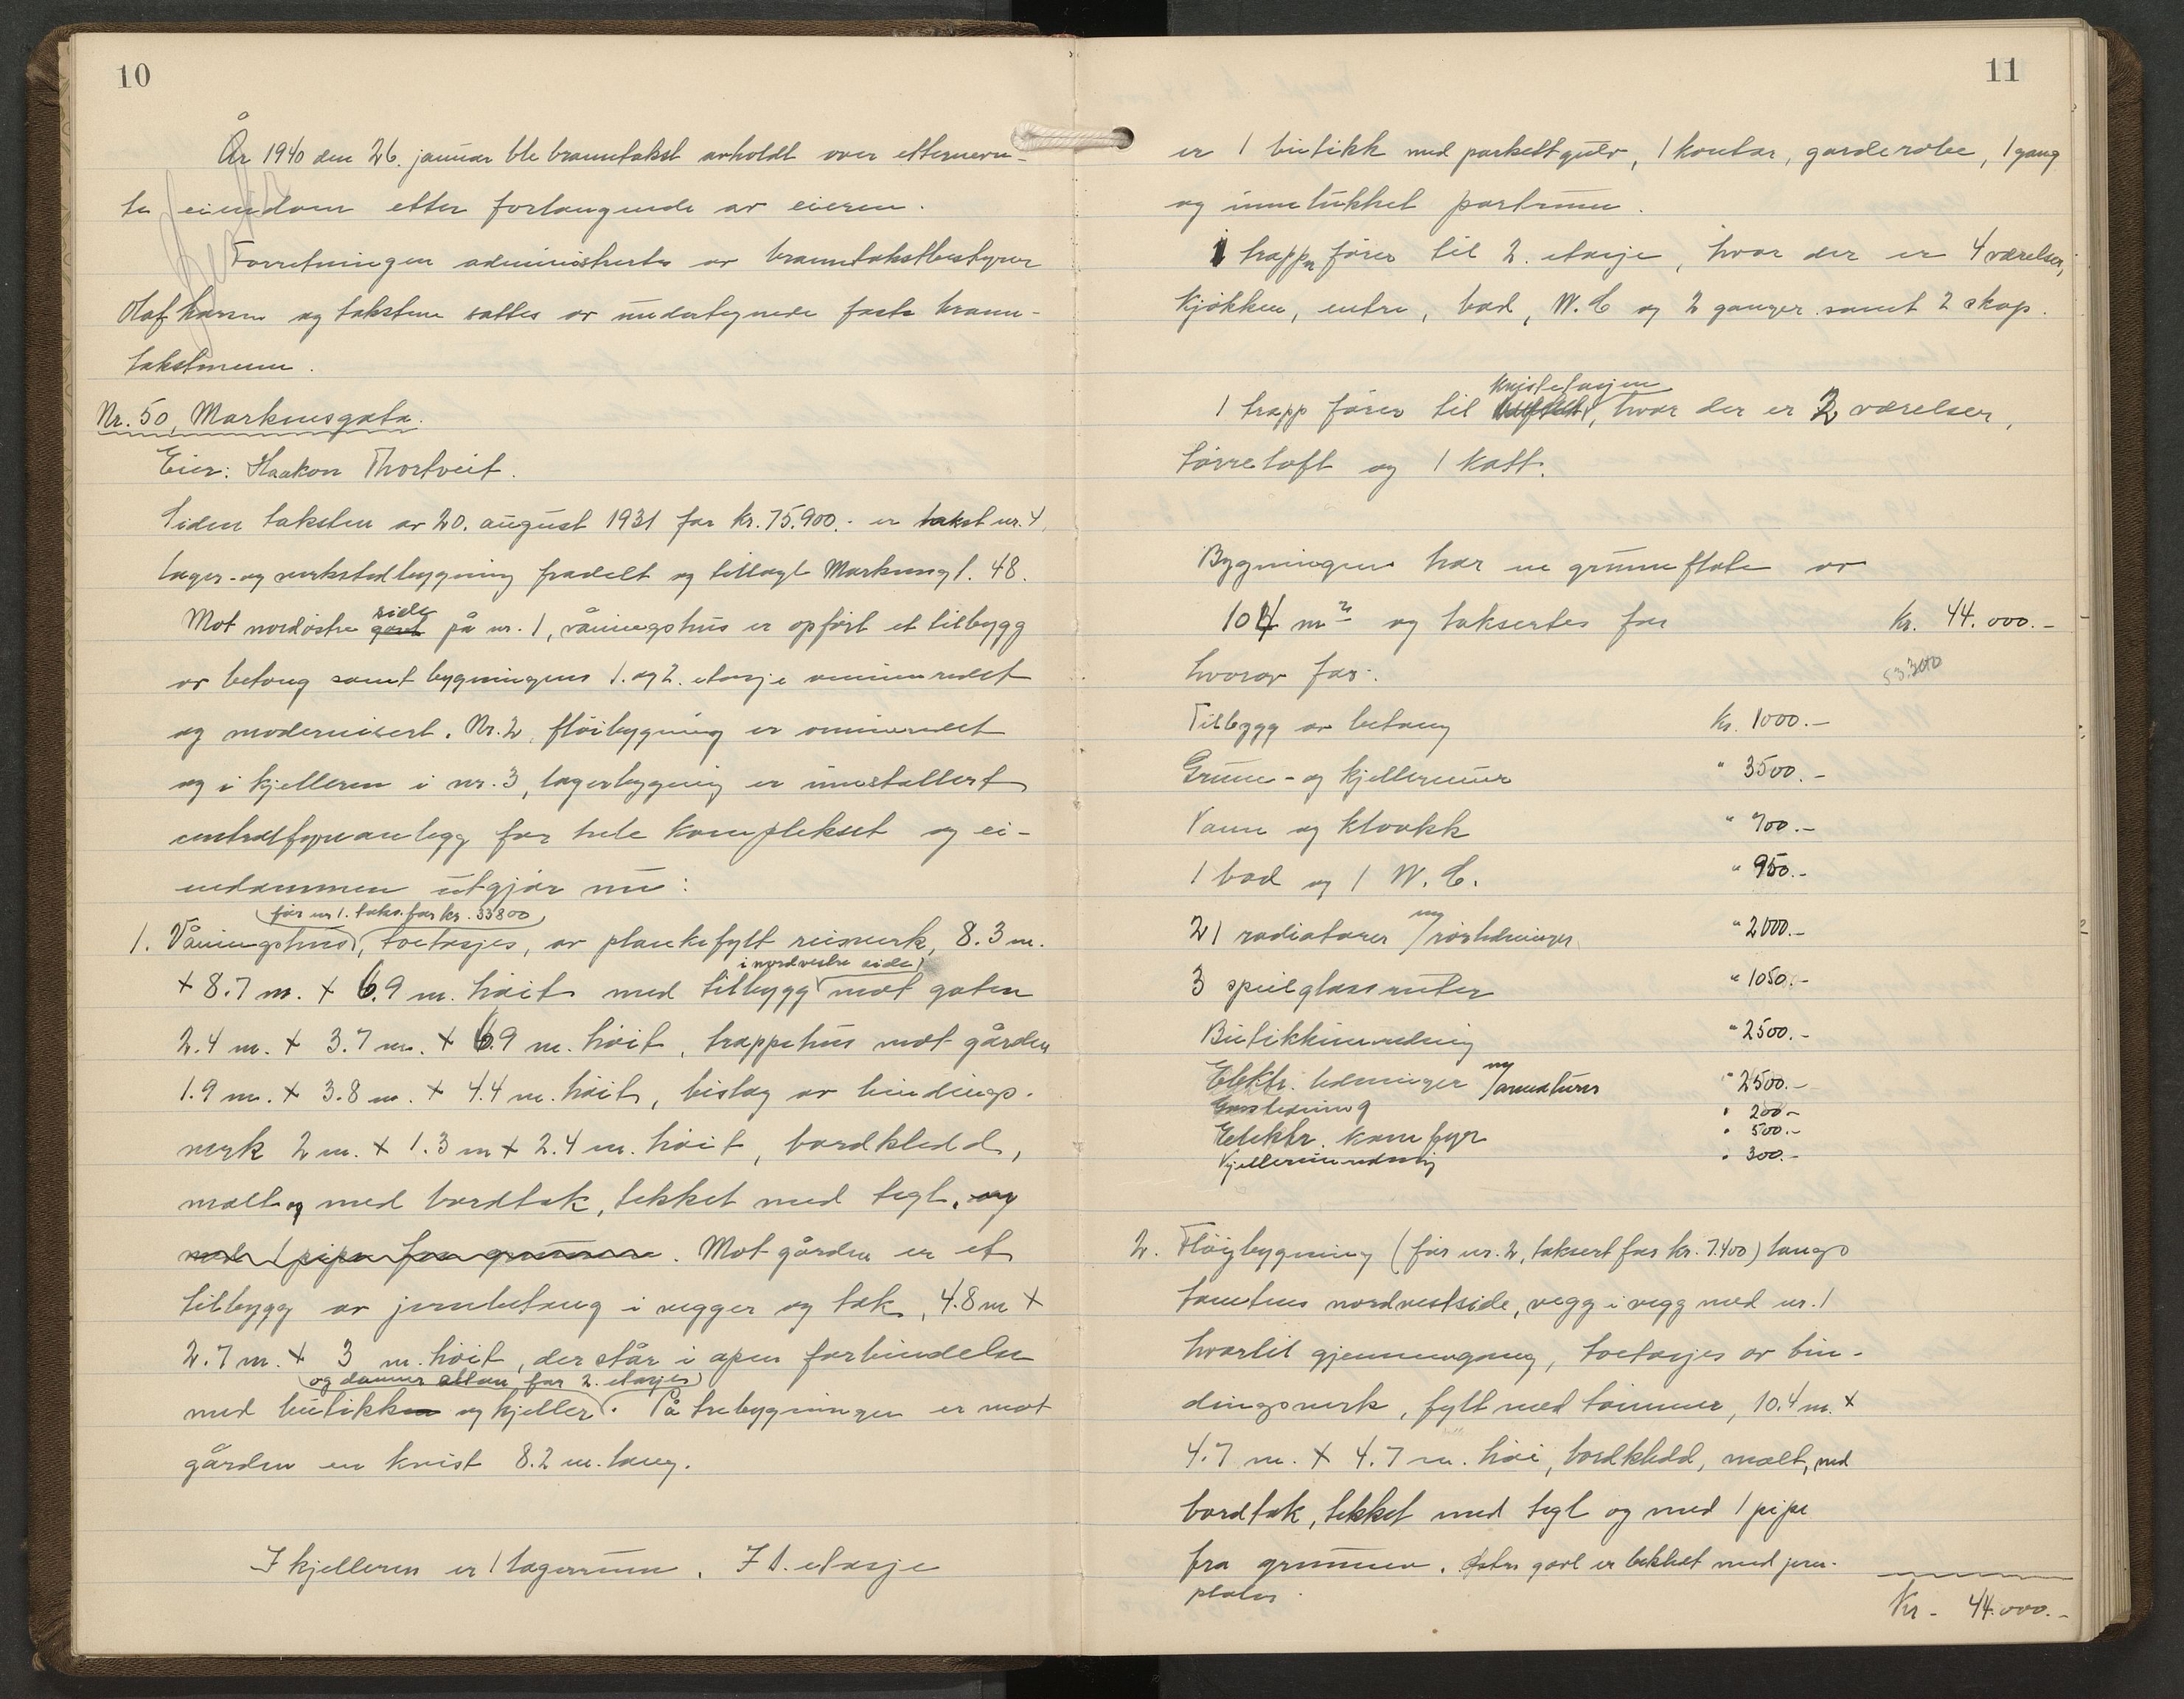 10
År 1940 den 26. januar ble branntakst avholdt over etternevn-
te eiendom etter forlangende av eieren.
Forretningen administrertes av branntakstbestyrer
Olaf Larsen og takstene sattes av undertegnede faste brann-
takstmenn.
Nr. 50, Markensgata.
Eier: Haakon Thortveit.
Siden taksten av 20. august 1931 for kr. 75.900.- er takst nr. 4,
lager- og verkstedbygning fradelt og tillagt Markensgt. 48.
side
Mot nordøstre gavl på nr. 1, våningshus er opført et tilbygg
av betong samt bygningens 1. og 2. etasje ominnredet
og modernisert. Nr. 2, fløibygning er ominnredet
og i kjelleren i nr. 3, lagerbygning er innstallert
centralfyranlegg for hele komplekset og ei-
endommen utgjør nu:
(før nr 1. taks. for kr. 33800)
1. Våningshus, toetasjes, av plankefylt reisverk, 8.3 m.
i nordvestre side,
+ 8.7 m. + 6.9 m. høit med tilbygg mot gaten
2.4 m. + 3.7 m. + 6.9 m. høit, trappehus mot gården
1.9 m. + 3.8 m. + 4.4 m. høit, bislag av bindings-
verk 2 m. + 1.3 m + 2.4 m. høit, bordkledd,
malt og med bordtak, tekket med tegl, og
med 1 pipe fra grunnen. Mot gården er et
tilbygg av jernbetong i vegger og tak, 4.8 m +
2.7 m. + 3 m. høit, der står i åpen forbindelse
(og danner altan for 2. etasje)
med butikken og kjeller. På trebygningen er mot
gården en kvist 8.2 m. lang.
I kjelleren er 1 lagerrum. I 1. etasje
11
er 1 butikk med parkettgulv, 1 kontor, garderobe, 1 gang
og innelukket portrum.
1 trapp fører til 2. etasje, hvor der er 4 værelser,
kjøkken, entre, bad, W.C og 2 ganger samt 2 skap.
kvistetasjen
1 trapp fører til, hvor der er 2 værelser,
tørreloft og 1 kott.
Bygningen har en grunnflate av
104 m² og taksertes for kr. 44.000.-
hvorav for: 53.300
Tilbygg av betong kr. 1000.-
Grunn- og kjellermur " 3500.-
Vann og kloakk " 700.-
1 bad og 1 W.C. " 950.-
21 radiatorer m/rørledninger " 2000.-
3 speilglassruter " 1050.-
Butikkinnredning " 2500.-
Elektr. ledninger m/armaturer " 2500.-
Gassledning " 200.-
Elektr. komfyr " 500.-
Kjellerinnredning " 300.-
2. Fløibygning (før nr. 2, taksert for kr. 7.400) langs
tomtens nordvestside, vegg i vegg med nr. 1
hvortil gjennemgang, toetasjes av bin-
dingsverk, fylt med tømmer, 10.4 m. +
4.7 m. + 4.7 m. høi, bordkledd, malt, med
bordtak, tekket med tegl og med 1 pipe
fra grunnen. Østre gavl er bekledt med jern-
plater.
Kr. 44.000.-